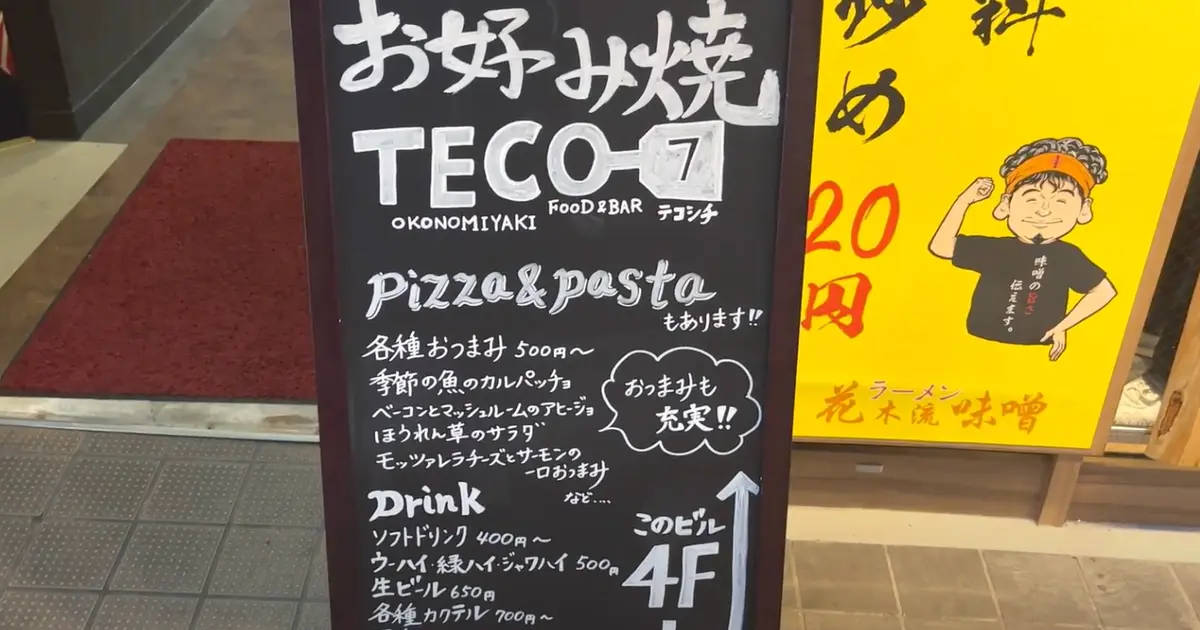 お好み焼
TECO 7
OKONOMIYAKI FOOD & BAR テコシチ
Pizza & pasta
もあります!!
各種おつまみ 500円~
季節の魚のカルパッチョ
ベーコンとマッシュルームのアヒージョ
ほうれん草のサラダ
モッツァレラチーズとサーモンの
一口おつまみ
など....
おつまみも
充実!!
Drink
ソフトドリンク 400円~
ウーハイ・緑ハイ・ジャワハイ 500円
生ビール 650円
各種カクテル 700円~
このビル
4F
料
め
20
円
味噌の旨さ
伝えます。
ラーメン
花木流味噌